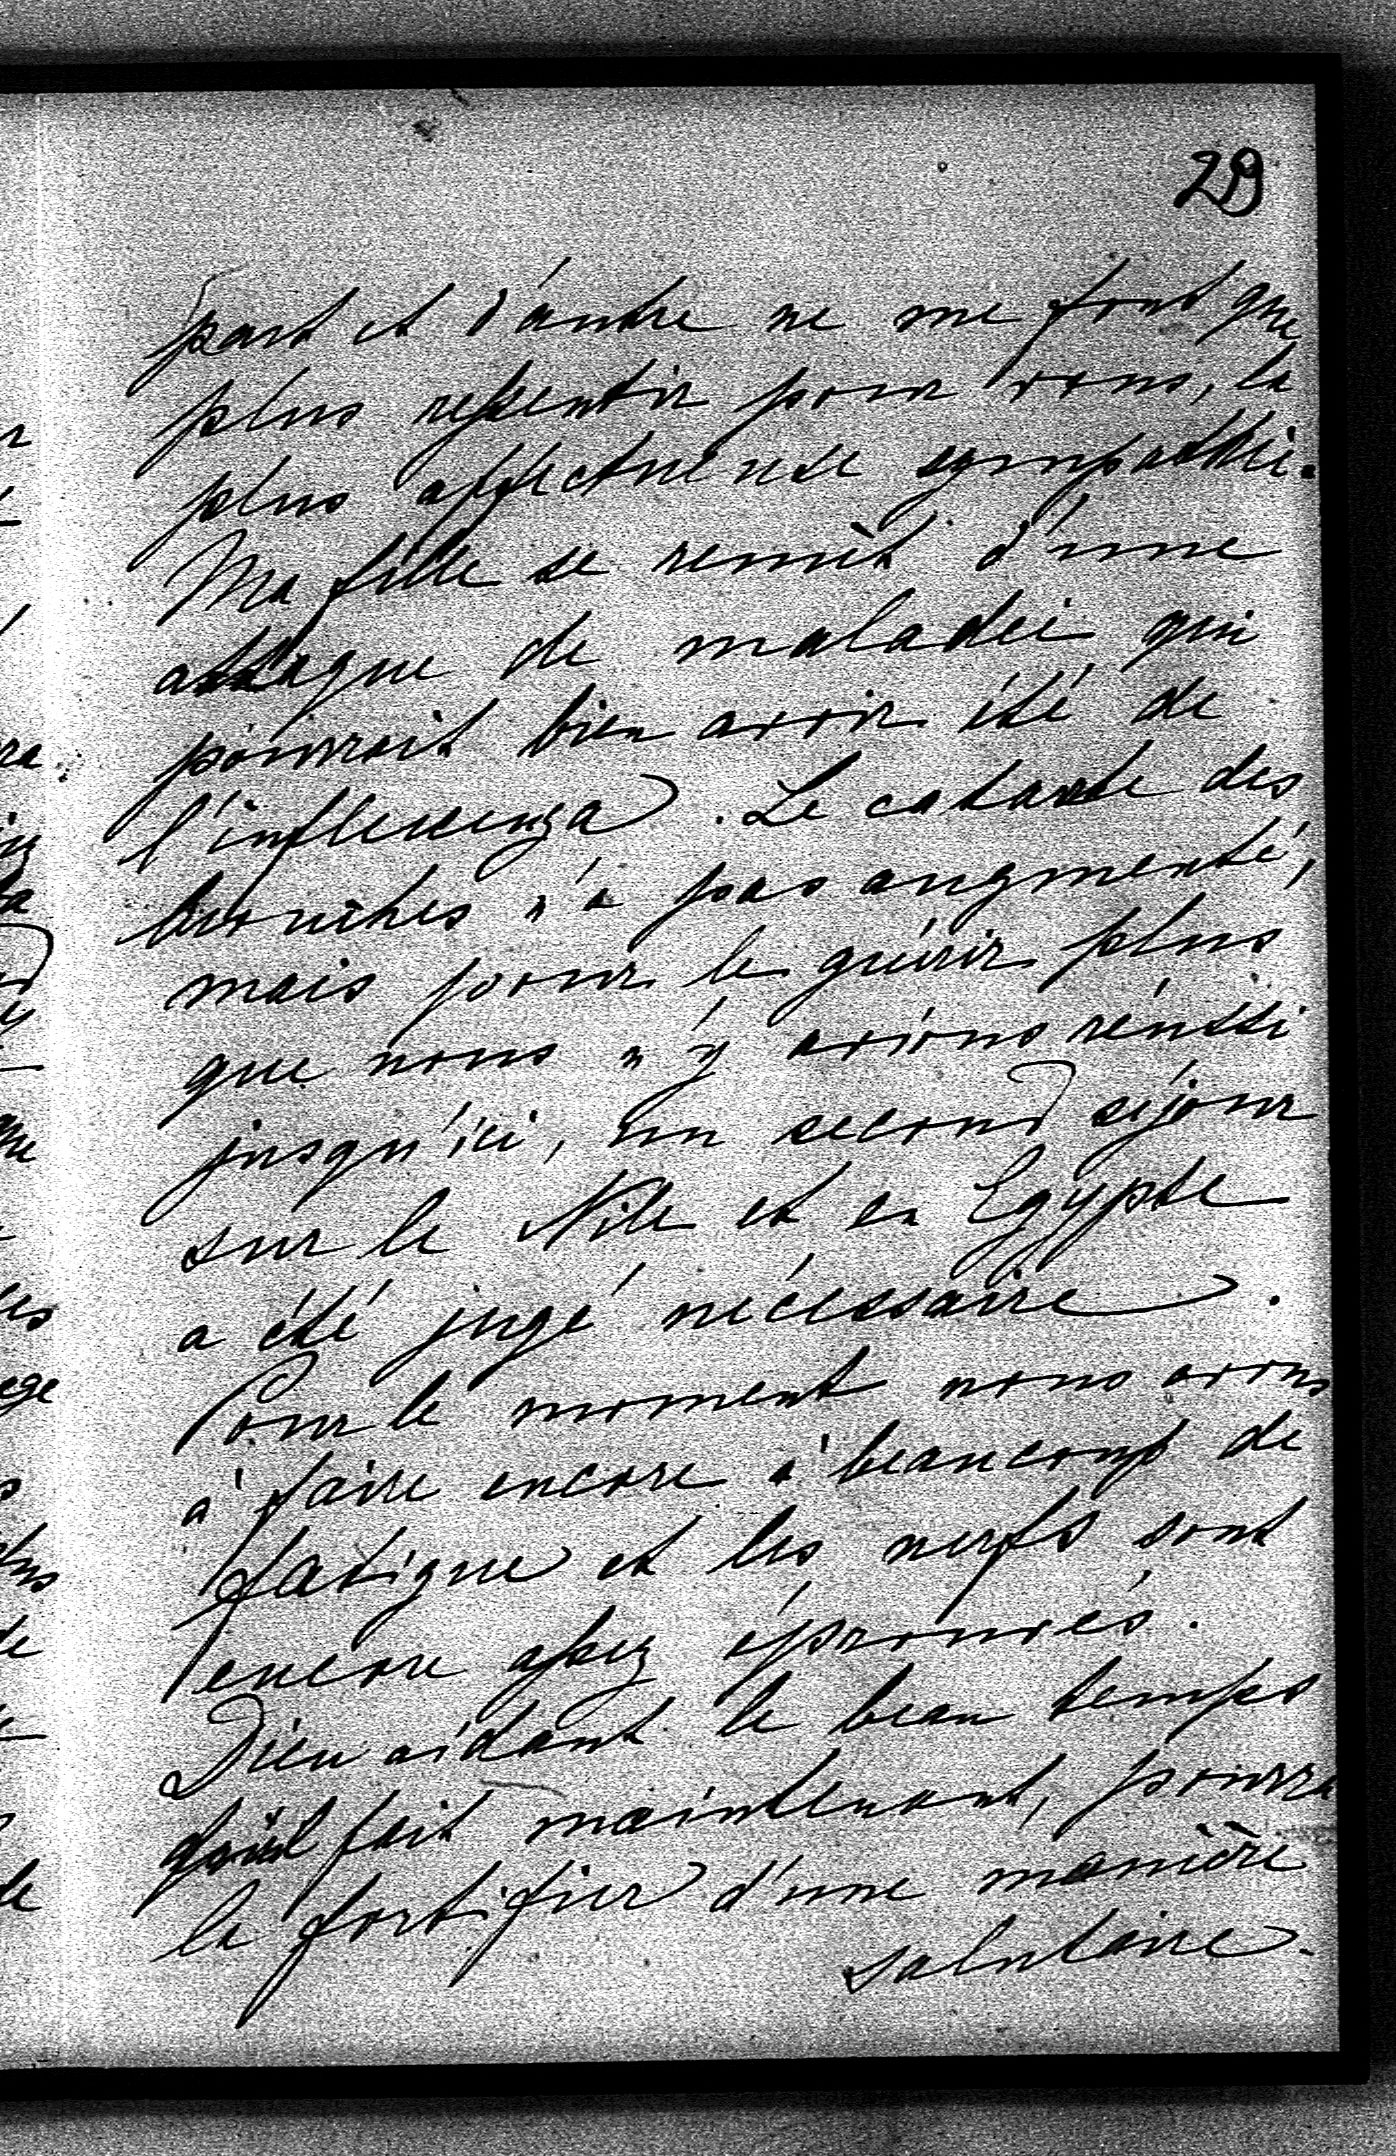 29
part et d'autre ne me font que
plus ressentir pour vous, la
plus affectueuse sympathie.
Ma fille se remèt d'une
attaque de maladie qui
pourrait bien avoir été de
l'influenza. Le catarrhe des
bronches n'a pas augmenté,
mais pour le guérir plus
que nous n'y avions réussi
jusqu'ici, un second séjour
sur le Nile et en Egypte
a été jugé nécessaire.
Pour le moment nous avons
à faire encore à beaucoup de
fatigue et les nerfs sont
encore assez éprouvés.
Dieu aidant le beau temps
qu'il fait maintenant, pourra
la fortifier d'une manière
salutaire.